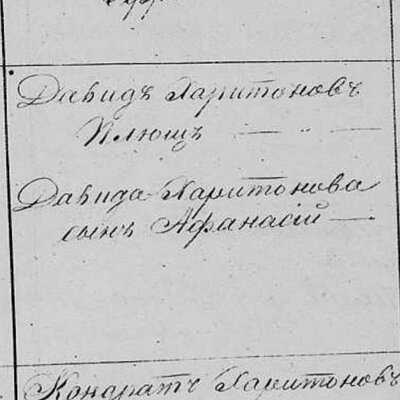 Давидъ Харитоновъ
Плющъ — „ —
Давида Харитонова
сынъ Афанасій —
Кондратъ Харитоновъ